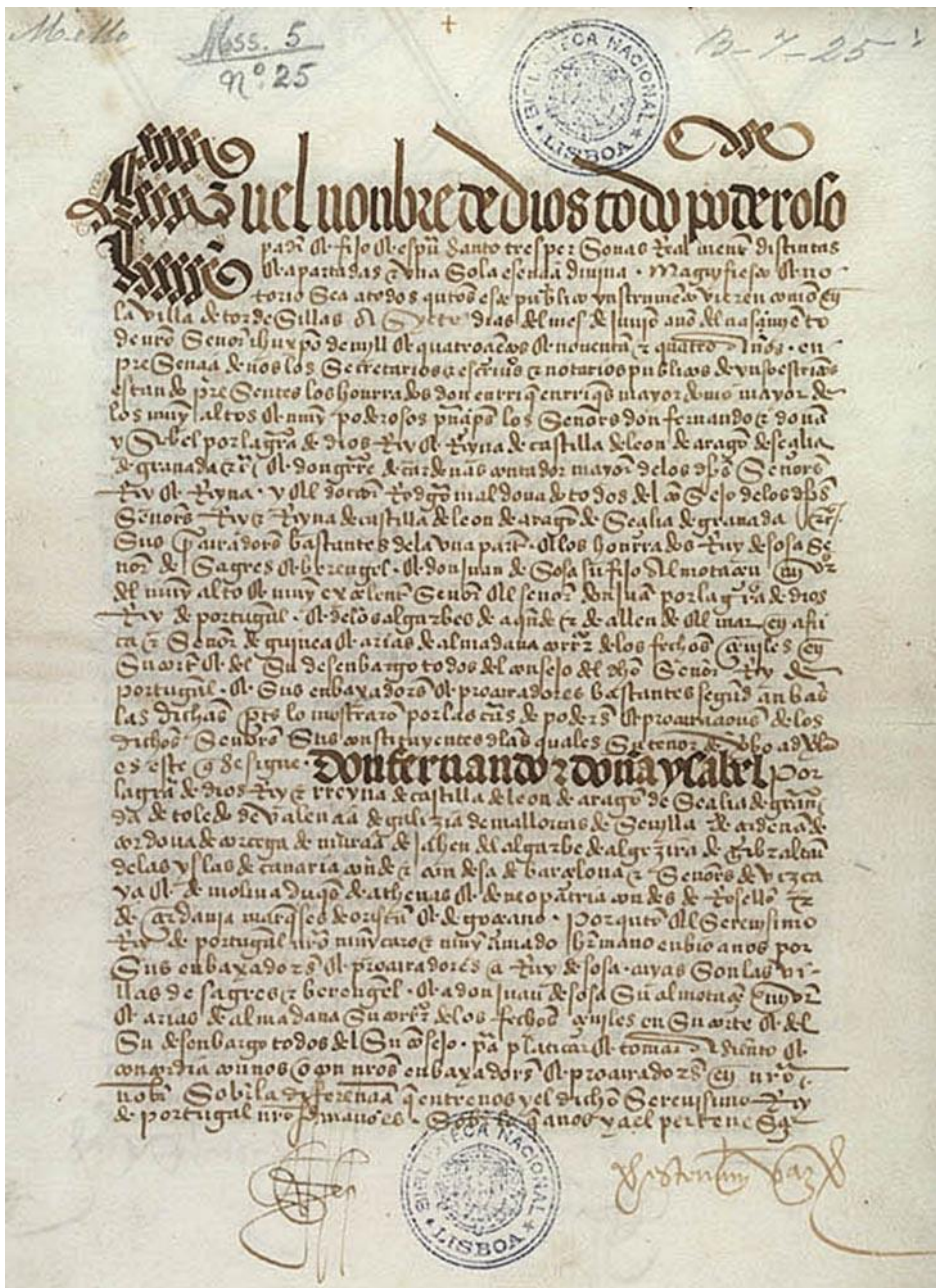 Mello
Mss. 5
Nº 25
B-7-25
BIBLIOTECA NACIONAL
LISBOA
En el nonbre de dios todo poderoso
padre & fijo & espu santo tres personas Real mente distintas
& apartadas & vna sola esençia diuina. magnifiesto & no
torio sea a todos qutos este publico ynstrumento vieren como en
la villa de tordesillas a syete dias del mes de junio ano del nasçimiento
de nro senor ihu xpo de myll & quatroçientos & nouenta & quatro anos. en
presençia de nos los secretarios & escriuos & notarios publicos de yuso escritos
estando presentes los honrrados don enrriq enrriqs mayordomo mayor de
los muy altos & muy poderosos prinçips los señors don fernando & dona
ysabel por la gra de dios Rey & Reyna de castilla de leon de arago de seçilia
de granada &c & don gutre de cardenas contador mayor de los dhos señors
Rey & Reyna. y el dotor Rodgo maldonado todos del consejo de los dhos
señors Rey & Reyna de castilla de leon de arago de seçilia de granada &c
sus procuradors bastantes de la vna parte. & los honrrados Ruy de sosa se
nor de sagres & berengel. & don juan de sosa su fijo almotaçen mayor
del muy alto & muy exçelente señor el señor don juan por la graçia de dios
Rey de portugal. & de los algarbes de aquende & de allende el mar en afri
ca & señor de guinea & arias de almadana corregidor de los fechos çeuiles en
su corte & del su desenbargo todos del consejo del dho señor Rey de
portugal. & sus enbaxadors & procuradores bastantes segund anbas
las dichas ptes lo mostraron por las cartas de poders & procuraçions de los
dichos señors sus constituyentes de las quales su tenor de verbo ad verbo
es este q se sigue. Don fernando & dona ysabel por
la gra de dios Rey & rreyna de castilla de leon de arago de seçilia de grana
da de toledo de valençia de galizia de mallorcas de seuilla de çerdena de
cordoua de corçega de murçia de jahen del algarbe de algezira de gibraltar
de las yslas de canaria conde & condesa de barçelona & señors de vizca
ya & de molina duqs de athenas & de neopatria condes de Rosellon &
de çerdania marqses de oristan & de goçeano. Por quto el serenisimo
Rey de portugal nro muy caro & muy amado hermano enbio a nos por
sus enbaxadors & procuradores a Ruy de sosa. cuyas son las vi
llas de sagres & berengel. & a don juan de sosa su almotaçe mayor
& arias de almadana su corregidor de los fechos çeuiles en su corte & del
su desenbargo todos del su consejo. para platicar & tomar asiento &
concordia con nos o con nros enbaxadors & procuradors en nro
nonbre sobre la diferençia q entre nos y el dicho serenisimo Rey
de portugal nro hermano es. sobre lo q a nos y a el perteneçe
BIBLIOTECA NACIONAL
LISBOA